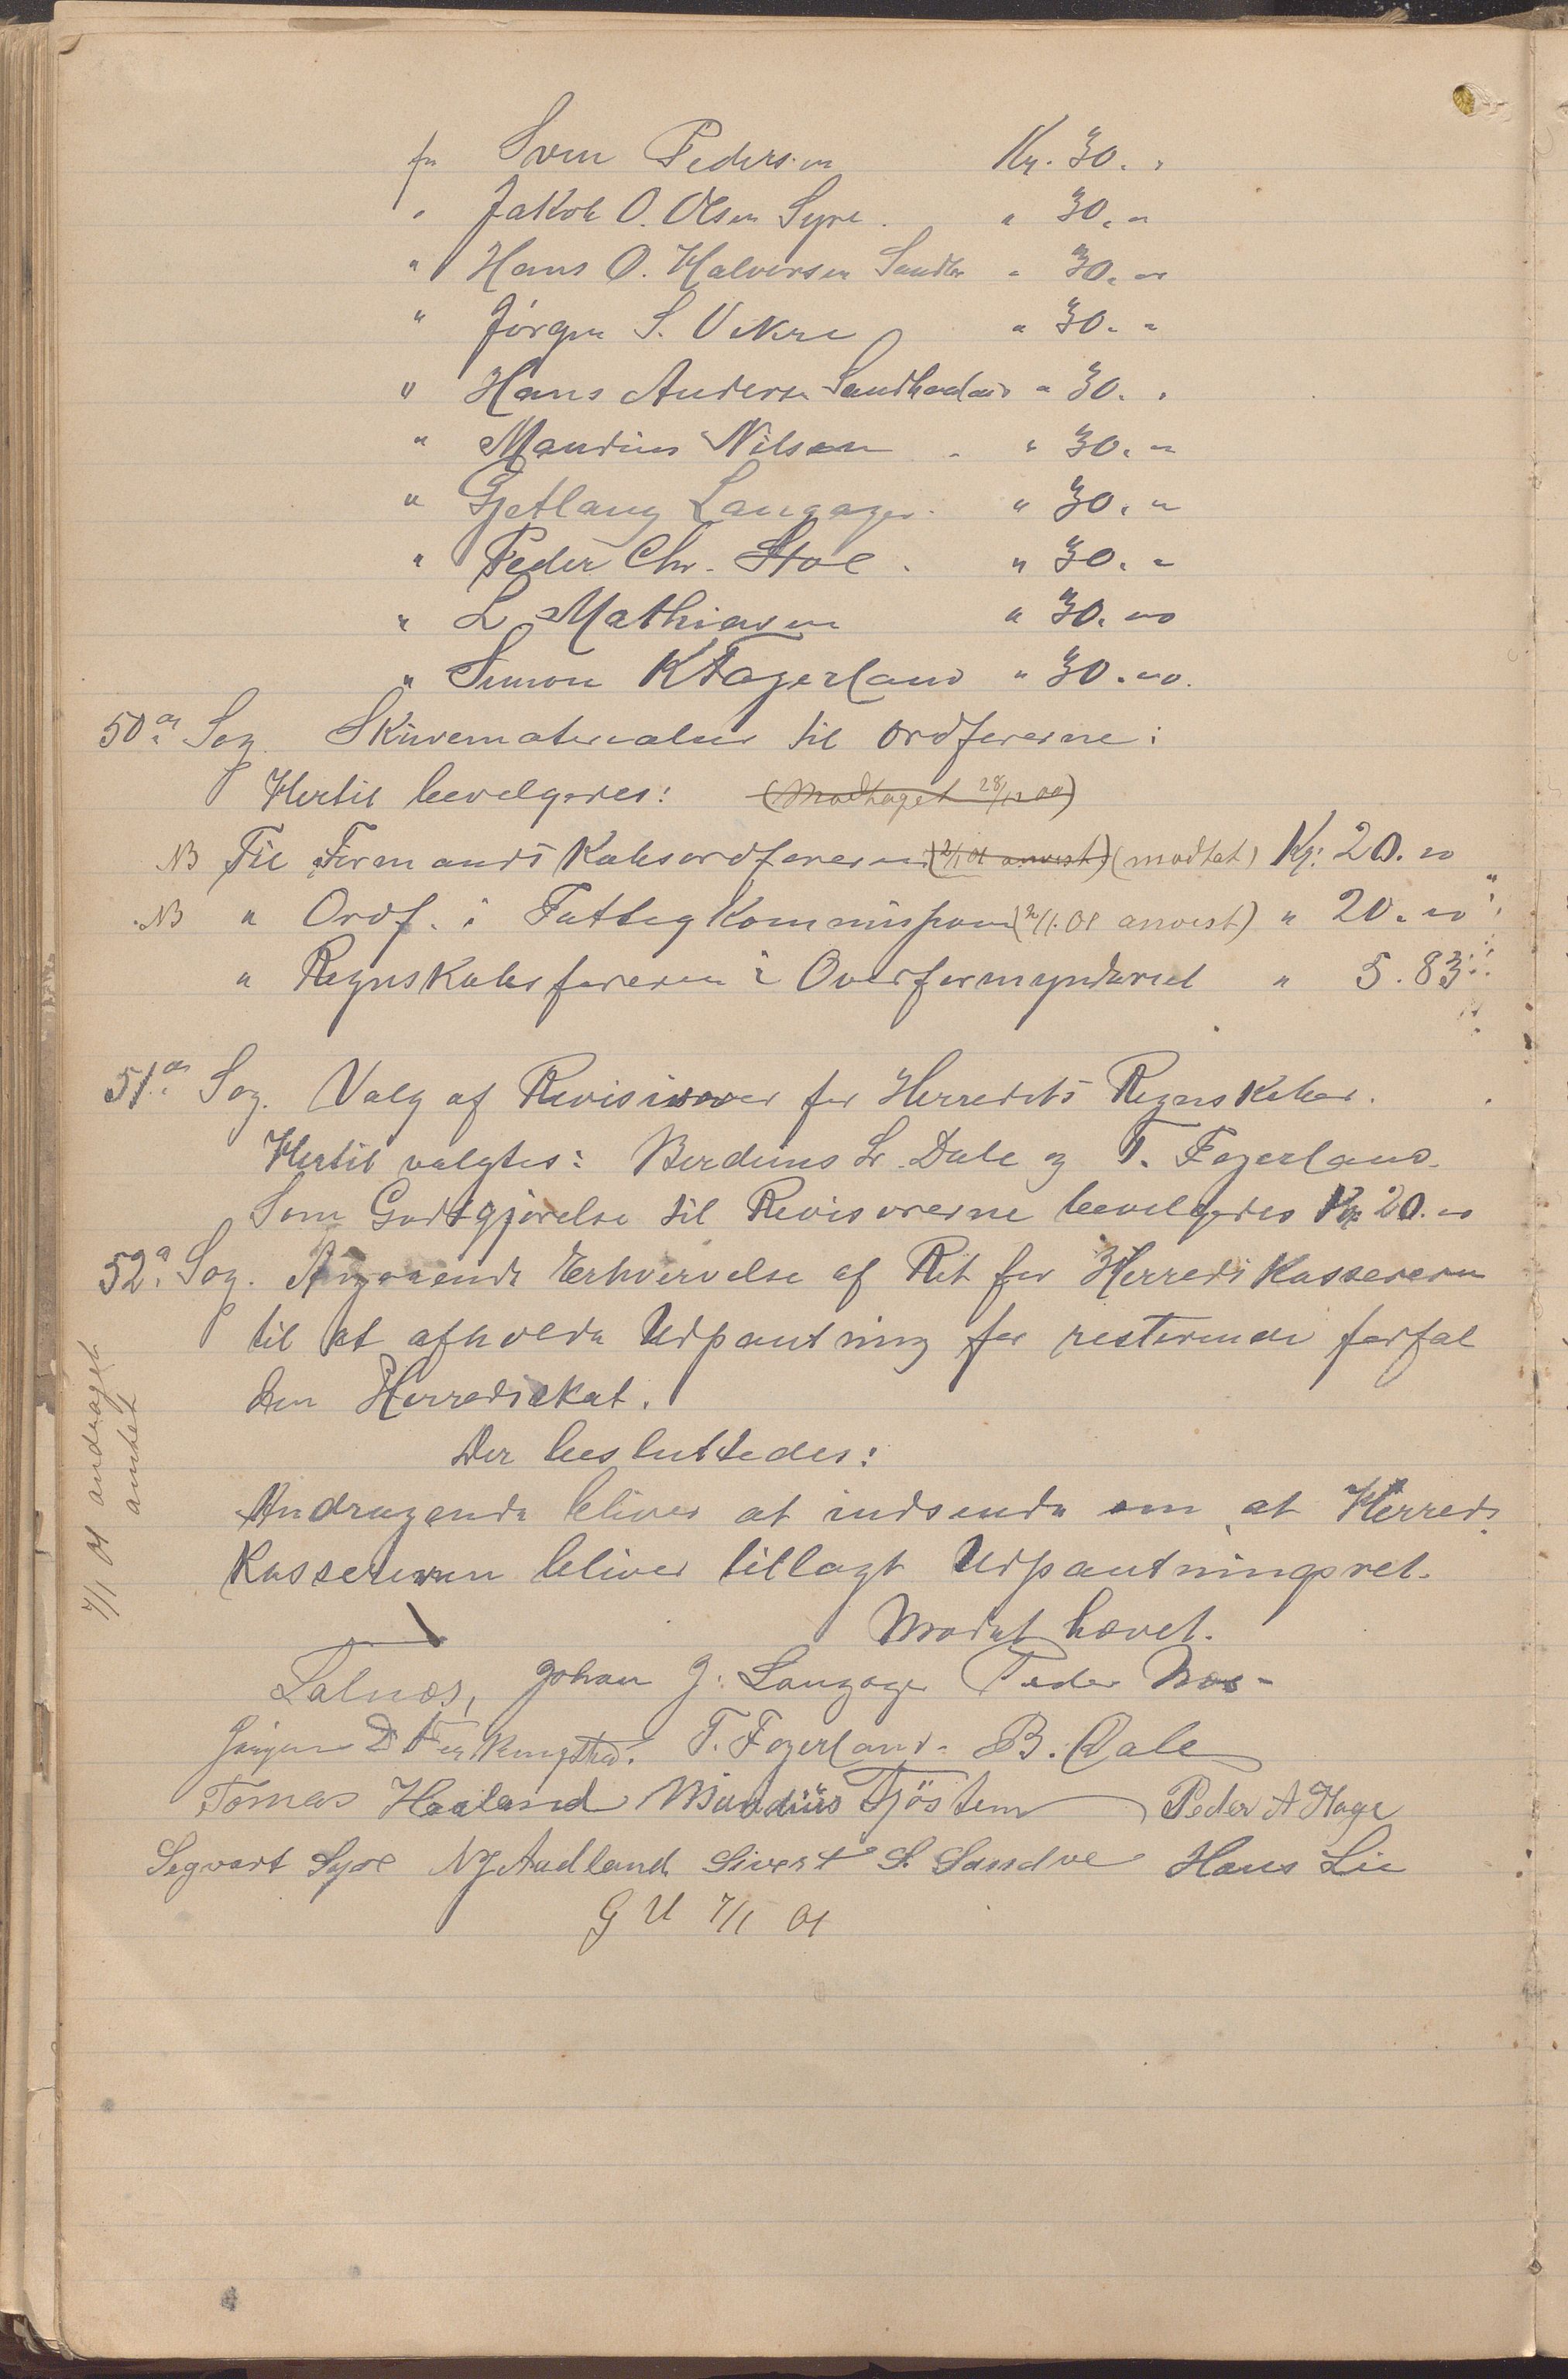 for Sven Pedersen Kr. 30. "
" Jakob O. Olsen Syre. " 30. "
" Hans O. Halvorsen Sandbr " 30. "
" Jörgen S. Vikre " 30. "
" Hans Anders. " 30. "
" Maudius Nilsen " 30. "
" Gjetlaug Langager. " 30. "
" Peder Chr. Stol. " 30. "
" L. Mathiasen " 30. 00
" Simon K Fagerland " 30. 00.
50de Sag. Skrivematerialier til Ordførerne:
Hertil bevilgedes: (Modtaget 28/12 00)
NB Til Formandskabsordføreren (2/1 01 anvist) (modtat) Kr. 20. 00
NB " Ordf. i Fattigkommissionen (2/1. 01 anvist) " 20. 00
" Regnskabsføreren i Overformynderiet " 5. 83
51de Sag. Valg af Revisorer for Herredets Regnskaber.
Hertil valgtes: Berdeus Dale og T. Fagerland.
Som Godtgjörelse til Revisorerne bevilgedes Kr 20. 00
52de Sag. Angaaende Erhvervelse af Ret for Herredskassereren
til at afholde Udpantning for resterende forfal
den Herredsskat.
Der besluttedes:
Andragende bliver at indsende om at Herreds
kassereren bliver tillagt Udpantningsret.
Mødet hævet.
7/1 01 andraget
amtet
Falnes, Johan J. Langager Peder Næs
Jörgen D. T. Fagerland. B. Dale
Tomas Haaland Maudius Tjösten Peder A Hage
Segvart Syre N J Audland Sivert S. Sandve Hans Lie
G U 7/1 01